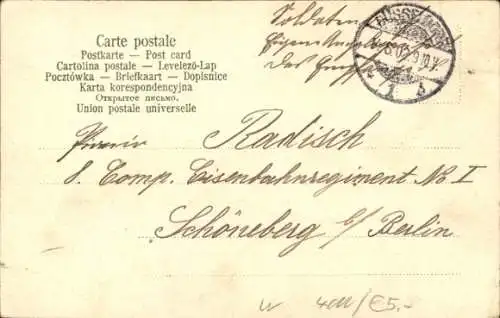 Carte postale
Postkarte — Post card
Cartolina postale — Levelező-Lap
Pocztówka — Briefkaart — Dopisnice
Karta korespondencyjna
Открытое письмо.
Union postale universelle
Soldaten
Eigene
DÜSSELDORF
Pionier Radisch
8. Comp. Eisenbahnregiment No I
Schöneberg b/ Berlin
€5.-